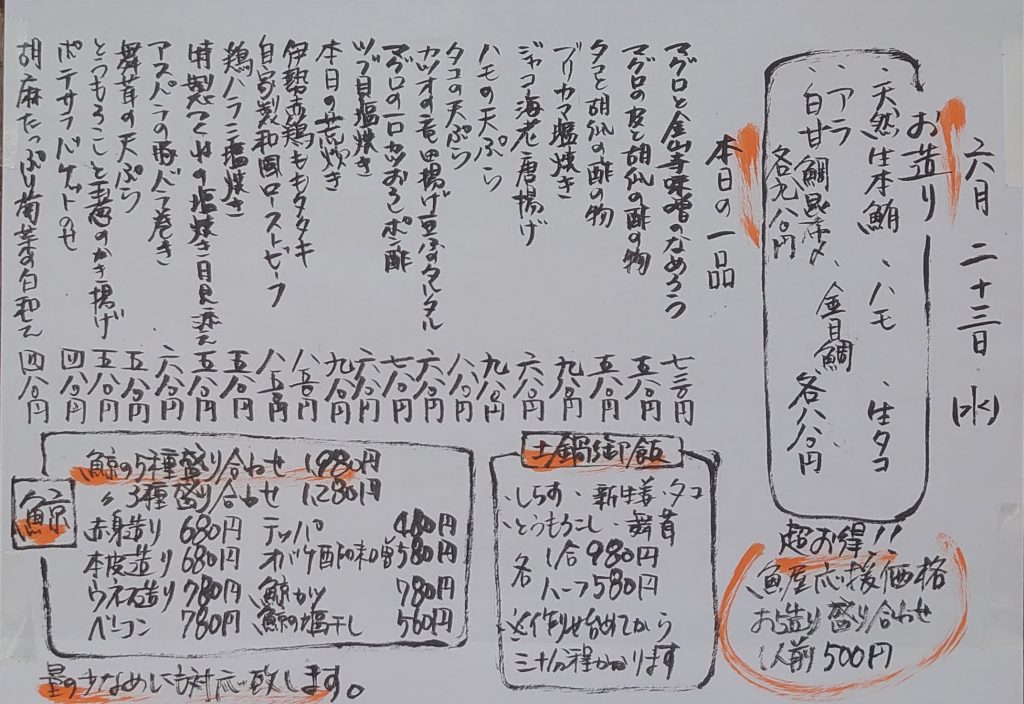 六月二十三日(水)
お造り
、天然生本鮪 、ハモ 、生タコ
、アラ 、金目鯛 各八八〇円
、白甘鯛昆布〆、
各九八〇円
本日の一品
マグロと金山寺味噌のなめろう 七三〇円
マグロの皮と胡瓜の酢の物 五八〇円
タコと胡瓜の酢の物 五八〇円
ブリカマ塩焼き 九八〇円
ジャコ海老唐揚げ 六八〇円
ハモの天ぷら 九八〇円
タコの天ぷら 八八〇円
カツオの竜田揚げ 豆ふのタルタル 六八〇円
マグロの一口カツおろしポン酢 七八〇円
ツブ貝塩焼き 六八〇円
本日の荒炊き 九八〇円
伊勢赤鶏ももタタキ 八五〇円
自家製和風ローストビーフ 八五〇円
鶏ハラミ塩焼き 五八〇円
特製つくねの塩焼き 月見添え 五八〇円
アスパラの豚バラ巻き 六八〇円
舞茸の天ぷら 五八〇円
とうもろこしと生姜のかき揚げ 五八〇円
ポテサラバゲットのせ 四八〇円
胡麻たっぷり菊芋の白和え 四八〇円
鯨
鯨の5種盛り合わせ 1,980円
〃3種盛り合わせ 1,280円
赤身造り 680円 テッパ 480円
本皮造り 680円 オバケ酢味噌 580円
ウネス造り 780円 鯨カツ 780円
ベーコン 780円 鯨の塩干し 560円
量の少なめにも対応致します。
土鍋御飯
、しらす、新生姜、タコ
、とうもろこし、舞茸
各 1合 980円
ハーフ 580円
※作り始めてから
三十分程かかります
超お得!!
魚屋応援価格
お造り盛り合わせ
1人前500円